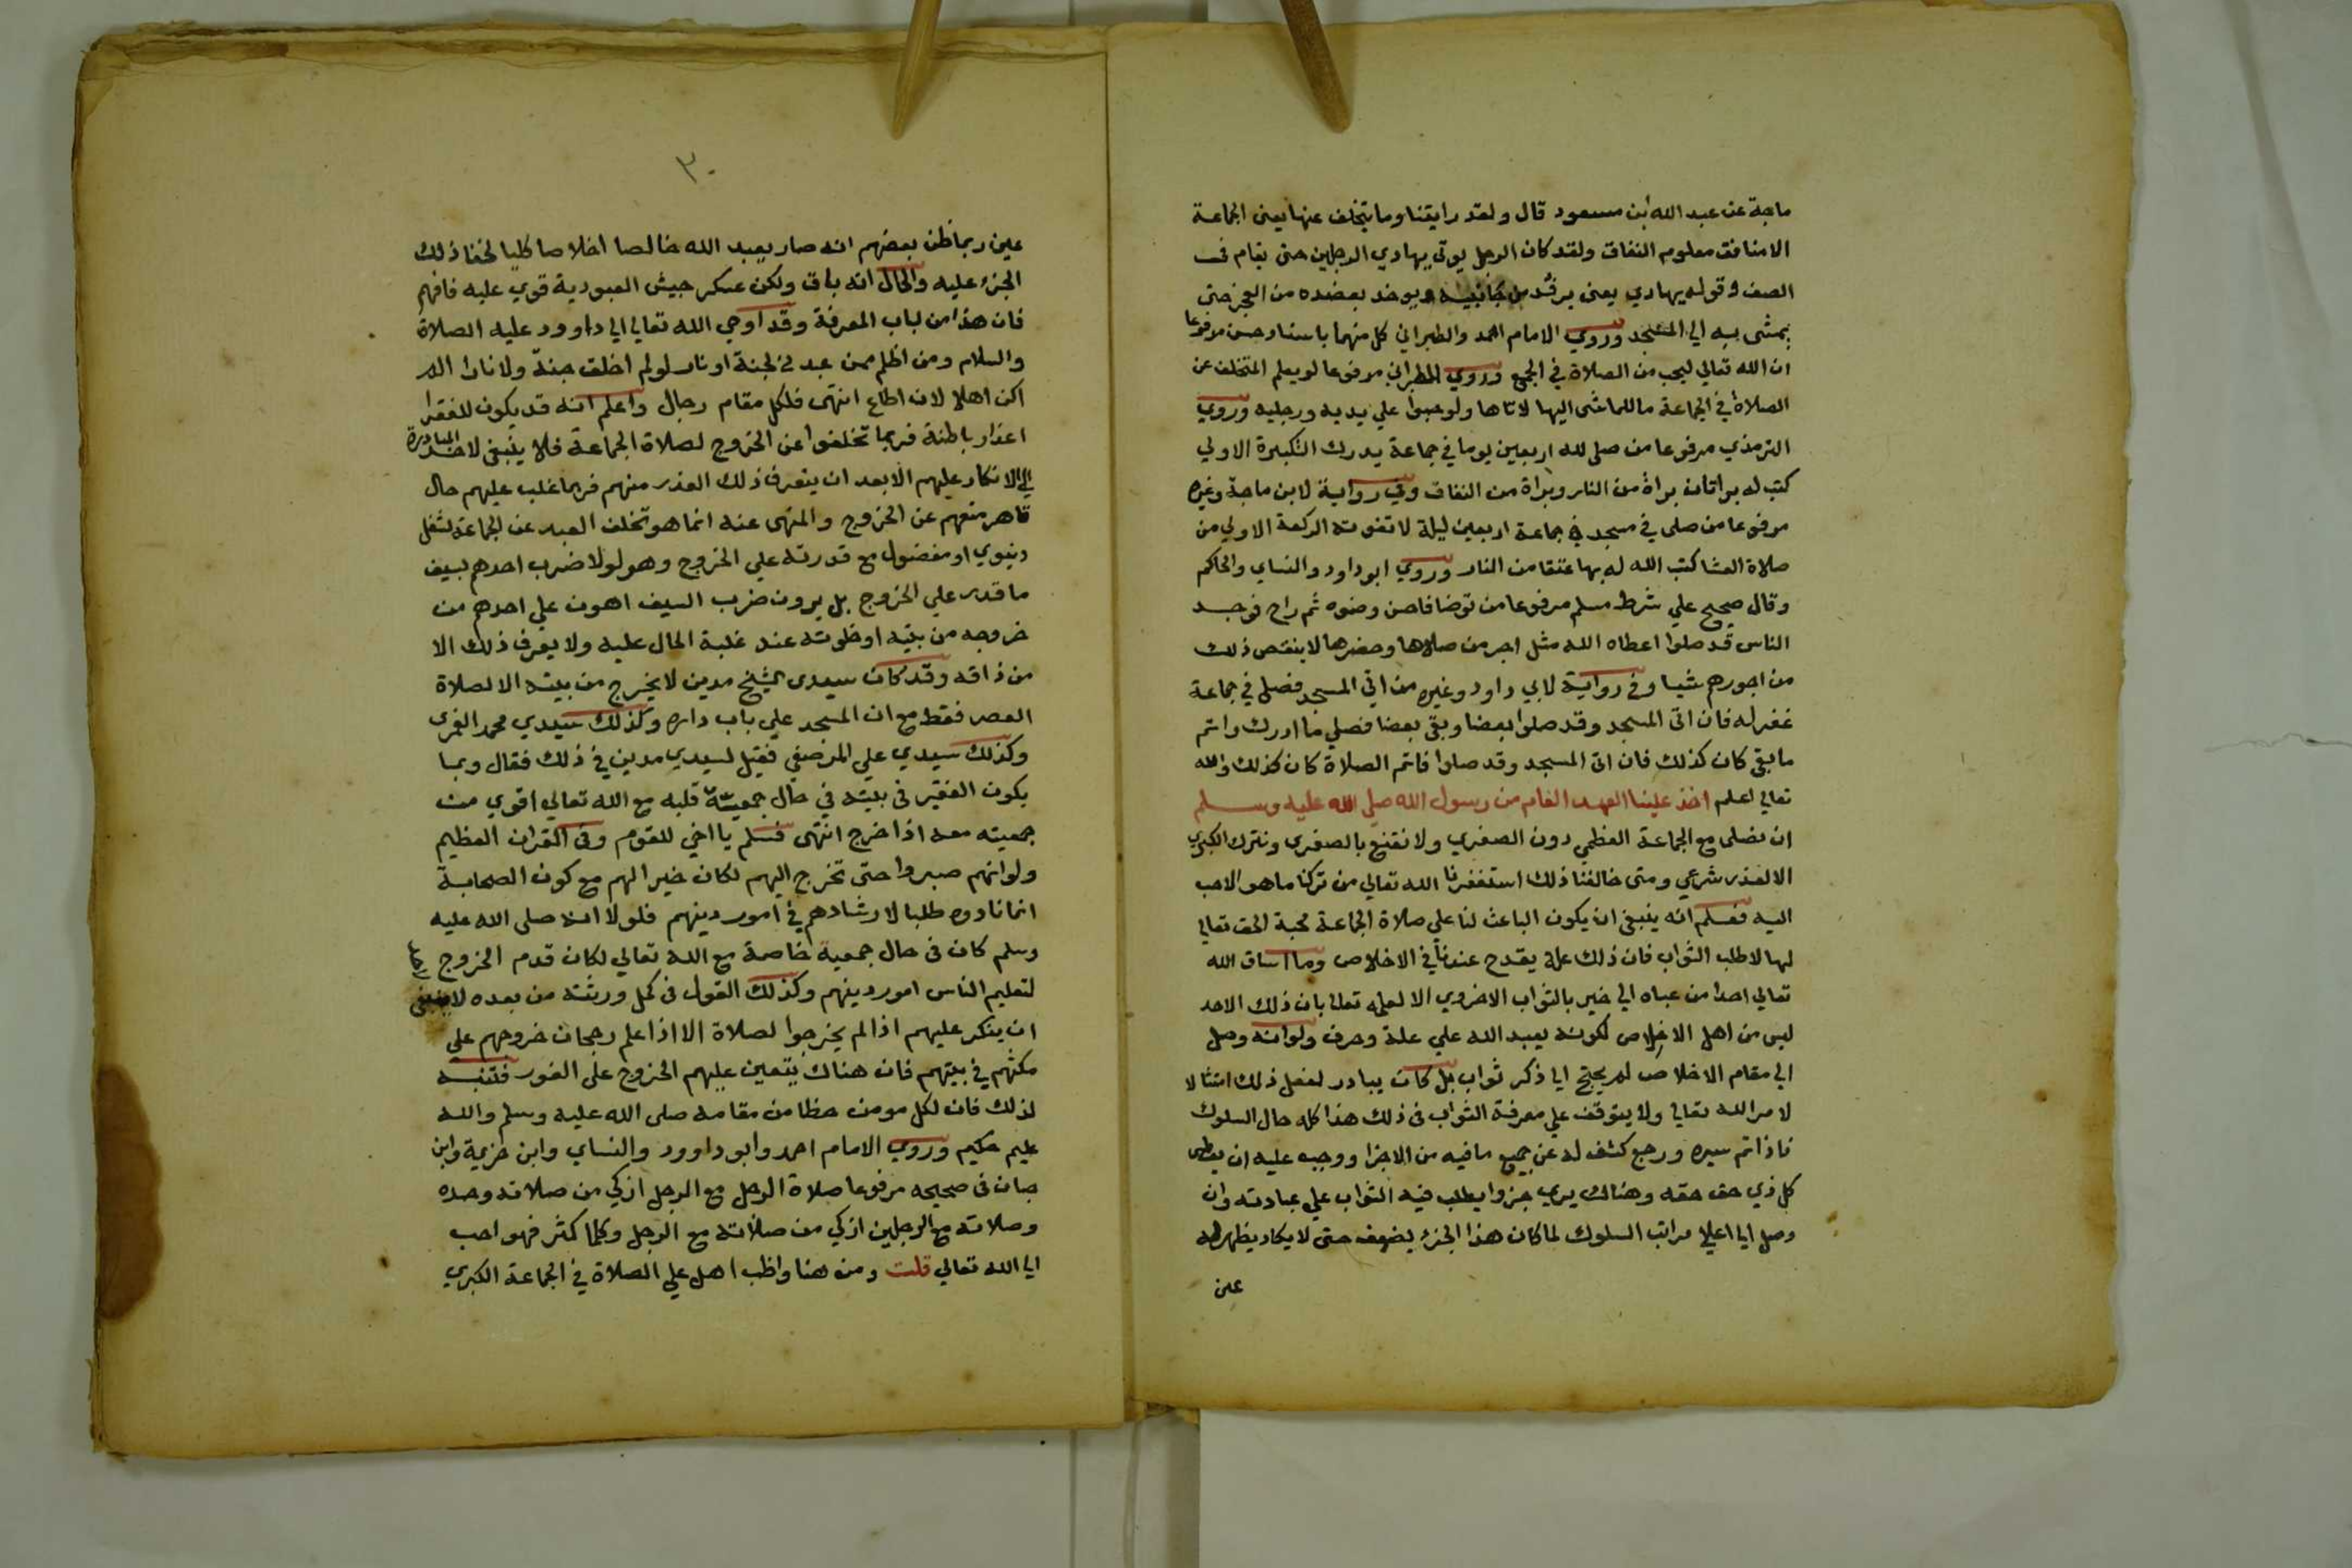 ماجة عن عبد الله ابن مسعود قال ولقد رايتنا وما يتخلف عنها يعني الجماعة
الا منافق معلوم النفاق ولقد كان الرجل يوتي يهادي الرجلين حتى يقام في
الصف وقوله يهادي يعني يرفد من جانبيه ويوخد بعضده من العجز حتى
يمشى به الي المسجد وروي الامام احمد والطبراني كل منهما باسناد حسن مرفوعا
ان الله تعالي ليعجب من الصلاة في الجمع وروي الطبراني مرفوعا لو يعلم المتخلف عن
الصلاة في الجماعة ما للماشى اليها لاتاها ولو حبوا علي يديه ورجليه وروي
الترمذي مرفوعا من صلى لله اربعين يوما في جماعة يدرك التكبيرة الاولي
كتب له براتان براة من النار وبراة من النفاق وفي رواية لابن ماجة وغيره
مرفوعا من صلى في مسجد في جماعة اربعين ليلة لا تفوته الركعة الاولي من
صلاة العشا كتب الله له بها عتقا من النار وروي ابو داود والنساي والحاكم
وقال صحيح علي شرط مسلم مرفوعا من توضا فاحسن وضوه ثم راح فوجد
الناس قد صلوا اعطاه الله مثل اجر من صلاها وحضرها لا ينقص ذلك
من اجورهم شيا وفي رواية لابي داود وغيره من اتي المسجد فصلى في جماعة
غفر له فان اتى المسجد وقد صلوا بعضا وبقى بعضا فصلي ما ادرك واتم
ما بقى كان كذلك فان اتى المسجد وقد صلوا فاتم الصلاة كان كذلك والله
تعالي اعلم اخذ علينا العهد العام من رسول الله صلى الله عليه وسلم
ان نصلى مع الجماعة العظمي دون الصغري ولا نقنع بالصغرى ونترك الكبري
الا لعذر شرعي ومتى خالفنا ذلك استغفرنا الله تعالي من تركنا ما هو الاحب
اليه فعلم انه ينبغى ان يكون الباعث لنا علي صلاة الجماعة محبة الحق تعالي
لها لا طلب الثواب فان ذلك علة يقدح عندنا في الاخلاص وما اساق الله
تعالي احدا من عباه الي خير بالثواب الاخروي الا لعلمه تعالي بان ذلك الاحد
ليس من اهل الاخلاص لكونه يعبد الله علي علة وحرف ولوانه وصل
الي مقام الاخلاص لم يحتج الي ذكر ثواب بل كان يبادر لفعل ذلك امتثالا
لامر الله تعالي ولا يتوقف علي معرفة الثواب في ذلك هذا كله حال السلوك
فاذا تم سيره ورجع كشف له عن جميع ما فيه من الاجزا ووجب عليه ان يعطى
كل ذي حق حقه وهناك يري جزوا يطلب فيه الثواب علي عبادته وان
وصل الي اعلي مراتب السلوك لما كان هذا الجزء يضعف حتى لا يكاد يظهر له
عين
٣٠
عين ربما ظن بعضهم انه صار يعبد الله خالصا اخلاصا كليا لخفا ذلك
الجزء عليه والحال انه باق ولكن عسكر جيش العبودية قوي عليه فافهم
فان هذا من لباب المعرفة وقد اوحي الله تعالي الي داوود عليه الصلاة
والسلام ومن اظلم ممن عبدني لجنة او نار لو لم اخلق جنة ولا نارا الم
اكن اهلا لان اطاع انتهى فلكل مقام رجال واعلم انه قد يكون للفقرا
اعذار باطنة فربما تخلفوا عن الخروج لصلاة الجماعة فلا ينبغى لاحد المبادرة
الي الانكار عليهم الا بعد ان يتعرف ذلك العذر منهم فربما غلب عليهم حال
قاهر منعهم عن الخروج والمنهى عنه انما هو تخلف العبد عن الجماعة لشغل
دنيوي او مفضول مع قدرته علي الخروج وهو لولا ضرب احدهم بسيف
ما قدر علي الخروج بل يرون ضرب السيف اهون علي احدهم من
خروجه من بيته او خلوته عند غلبة الحال عليه ولا يعرف ذلك الا
من ذاقه وقد كان سيدى الشيخ مدين لا يخرج من بيته الا لصلاة
العصر فقط مع ان المسجد علي باب داره وكذلك سيدي محمد الغمرى
وكذلك سيدي علي المرصفي فقيل لسيدي مدين في ذلك فقال ربما
يكون الفقير في بيته في حال جمعية قلبه مع الله تعالي اقوي من
جمعيته معه اذا خرج انتهى فسلم يا اخي للقوم وفى القران العظيم
ولوانهم صبروا حتى تخرج اليهم لكان خيرا لهم مع كون الصحابة
انما نادوه طلبا لارشادهم في امور دينهم فلولا انه صلى الله عليه
وسلم كان في حال جمعية خاصة مع الله تعالي لكان قدم الخروج
لتعليم الناس امور دينهم وكذلك القول في كمل ورثته من بعده لا ينبغى
ان ينكر عليهم اذا لم يخرجوا لصلاة الا اذا علم رجحان خروجهم علي
مكثهم في بيتهم فان هناك يتعين عليهم الخروج على الفور فتنبه
لذلك فان لكل مومن حظا من مقامه صلى الله عليه وسلم والله
عليم حكيم وروي الامام احمد وابو داوود والنساي وابن خزيمة وابن
حبان في صحيحه مرفوعا صلاة الرجل مع الرجل ازكي من صلاته وحده
وصلاته مع الرجلين ازكي من صلاته مع الرجل وكلما كثر فهو احب
الي الله تعالي قلت ومن هنا واظب اهل علي الصلاة في الجماعة الكبري